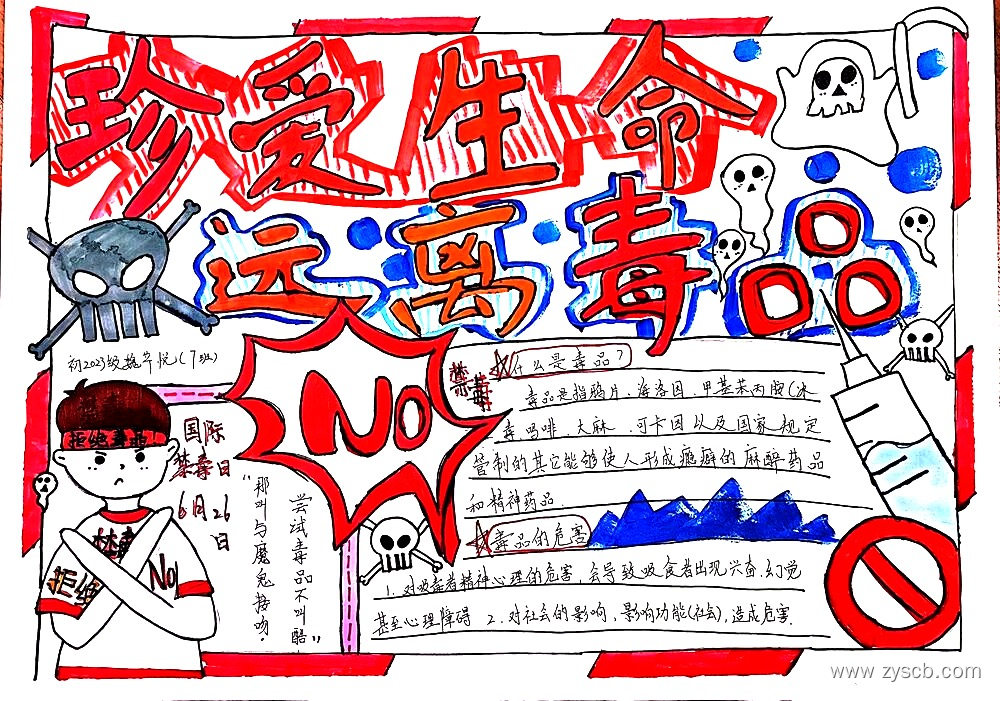 珍爱生命
远离毒品
初2023级魏芹悦(7班)
NO
禁毒
什么是毒品?
毒品是指鸦片、海洛因、甲基苯丙胺(冰
毒 吗啡、大麻、可卡因以及国家规定
管制的其它能够使人形成瘾癖的麻醉药品
和精神药品.
毒品的危害
1. 对吸毒者精神心理的危害,会导致吸食者出现兴奋.幻觉
甚至心理障碍 2. 对社会的影响,影响功能(社会),造成危害.
拒绝毒品
国际
禁毒日
6月26
日
尝试毒品不叫酷”
“那叫与魔鬼接吻.
禁毒
拒绝
No
www.zyscb.com